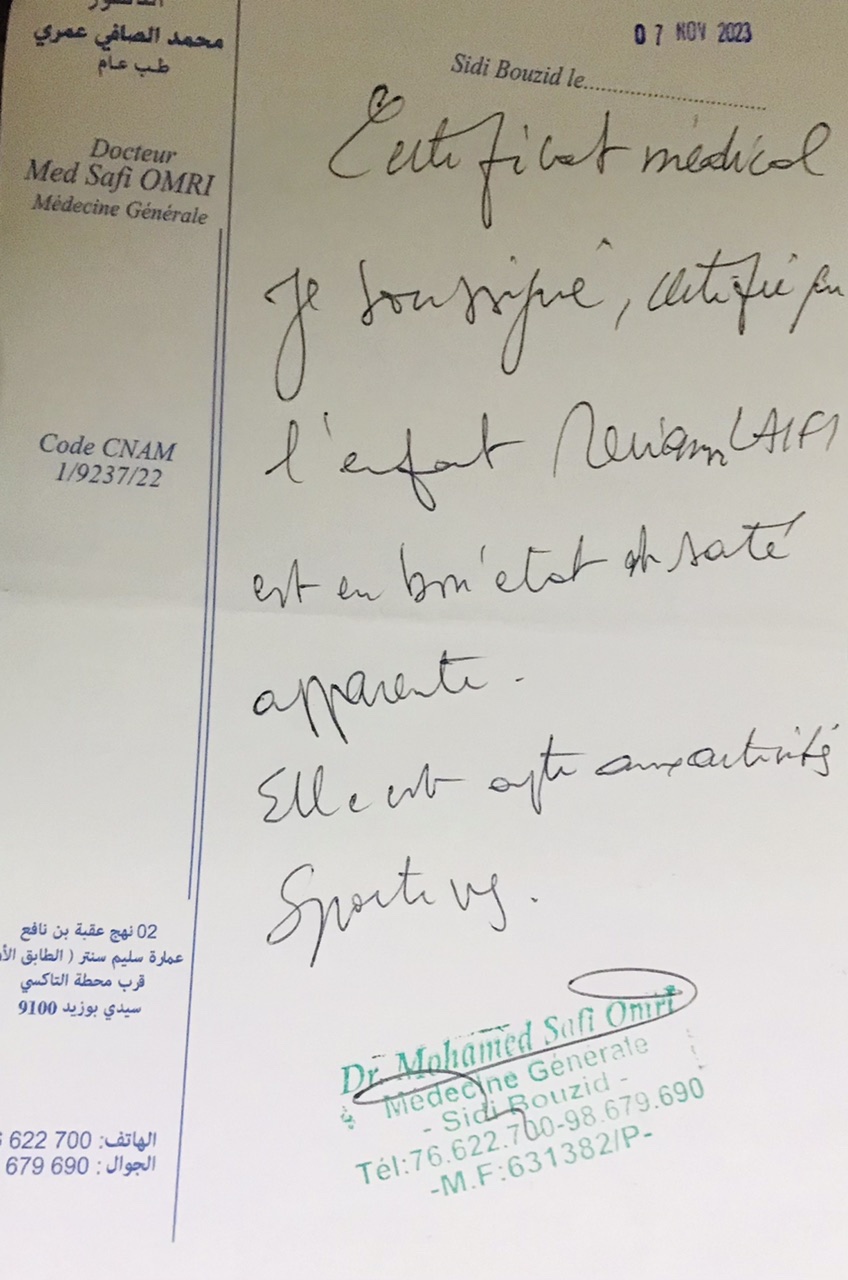 الدكتور
محمد الصافي عمري
طب عام
Docteur
Med Safi OMRI
Médecine Générale
Code CNAM
1/9237/22
07 NOV 2023
Sidi Bouzid le
Certificat médical
Je soussigné, certifie
l'enfant LAIFI
est en bon état de santé
apparente.
Elle est apte aux activités
Sportives.
02 نهج عقبة بن نافع
عمارة سليم سنتر ( الطابق
قرب محطة التاكسي
سيدي بوزيد 9100
الهاتف: 622 700
الجوال : 679 690
Dr. Mohamed Safi Omri
Médecine Générale
- Sidi Bouzid -
Tél:76.622.700-98.679.690
-M.F:631382/P-